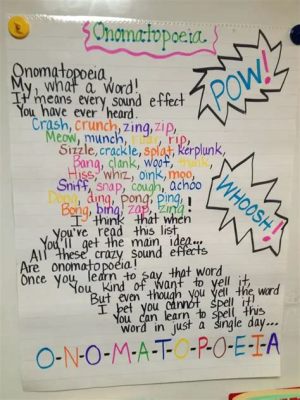 Onomatopoeia
Onomatopoeia,
My, what a word!
It means every sound effect
You have ever heard.
Crash, crunch, zing, zip,
Meow, munch, rip,
Sizzle, crackle, splat, kerplunk,
Bang, clank, woot,
Hiss, whiz, oink, moo,
Sniff, snap, cough, achoo
Dong, ding, pong, ping,
Bong, bing, zap, zing!
I think that when
You've read this list
You'll get the main idea...
All these crazy sound effects
Are onomatopoeia!
Once you learn to say that word
You kind of want to yell it,
But even though you yell the word
I bet you cannot spell it!
You can learn to spell this
word in just a single day...
O-N-O-M-A-T-O-P-O-E-I-A
POW!
WHOOSH!